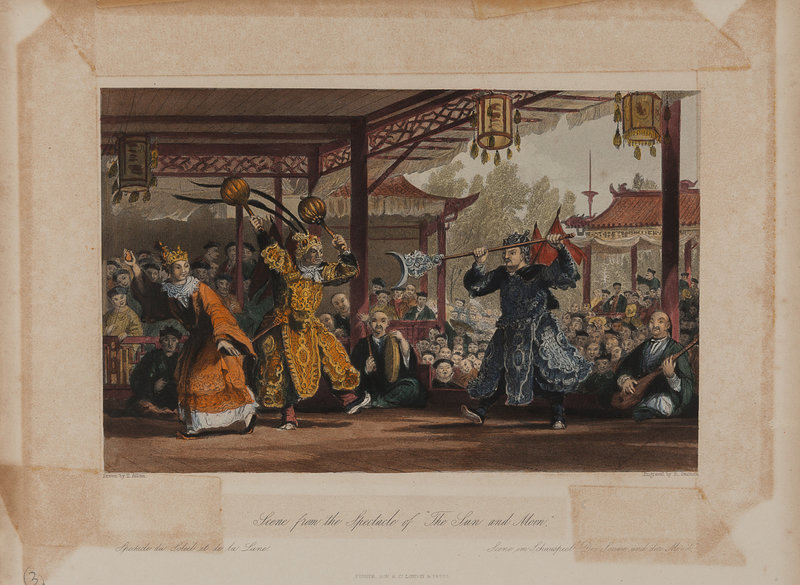 Drawn by T. Allom.
Engraved by
Scene from the Spectacle of "The Sun and Moon."
Spectacle du Soleil et de la Lune.
Scene im Schauspiel "Die Sonne und der Mond."
FISHER, SON & Cº. LONDON & PARIS.
(3)